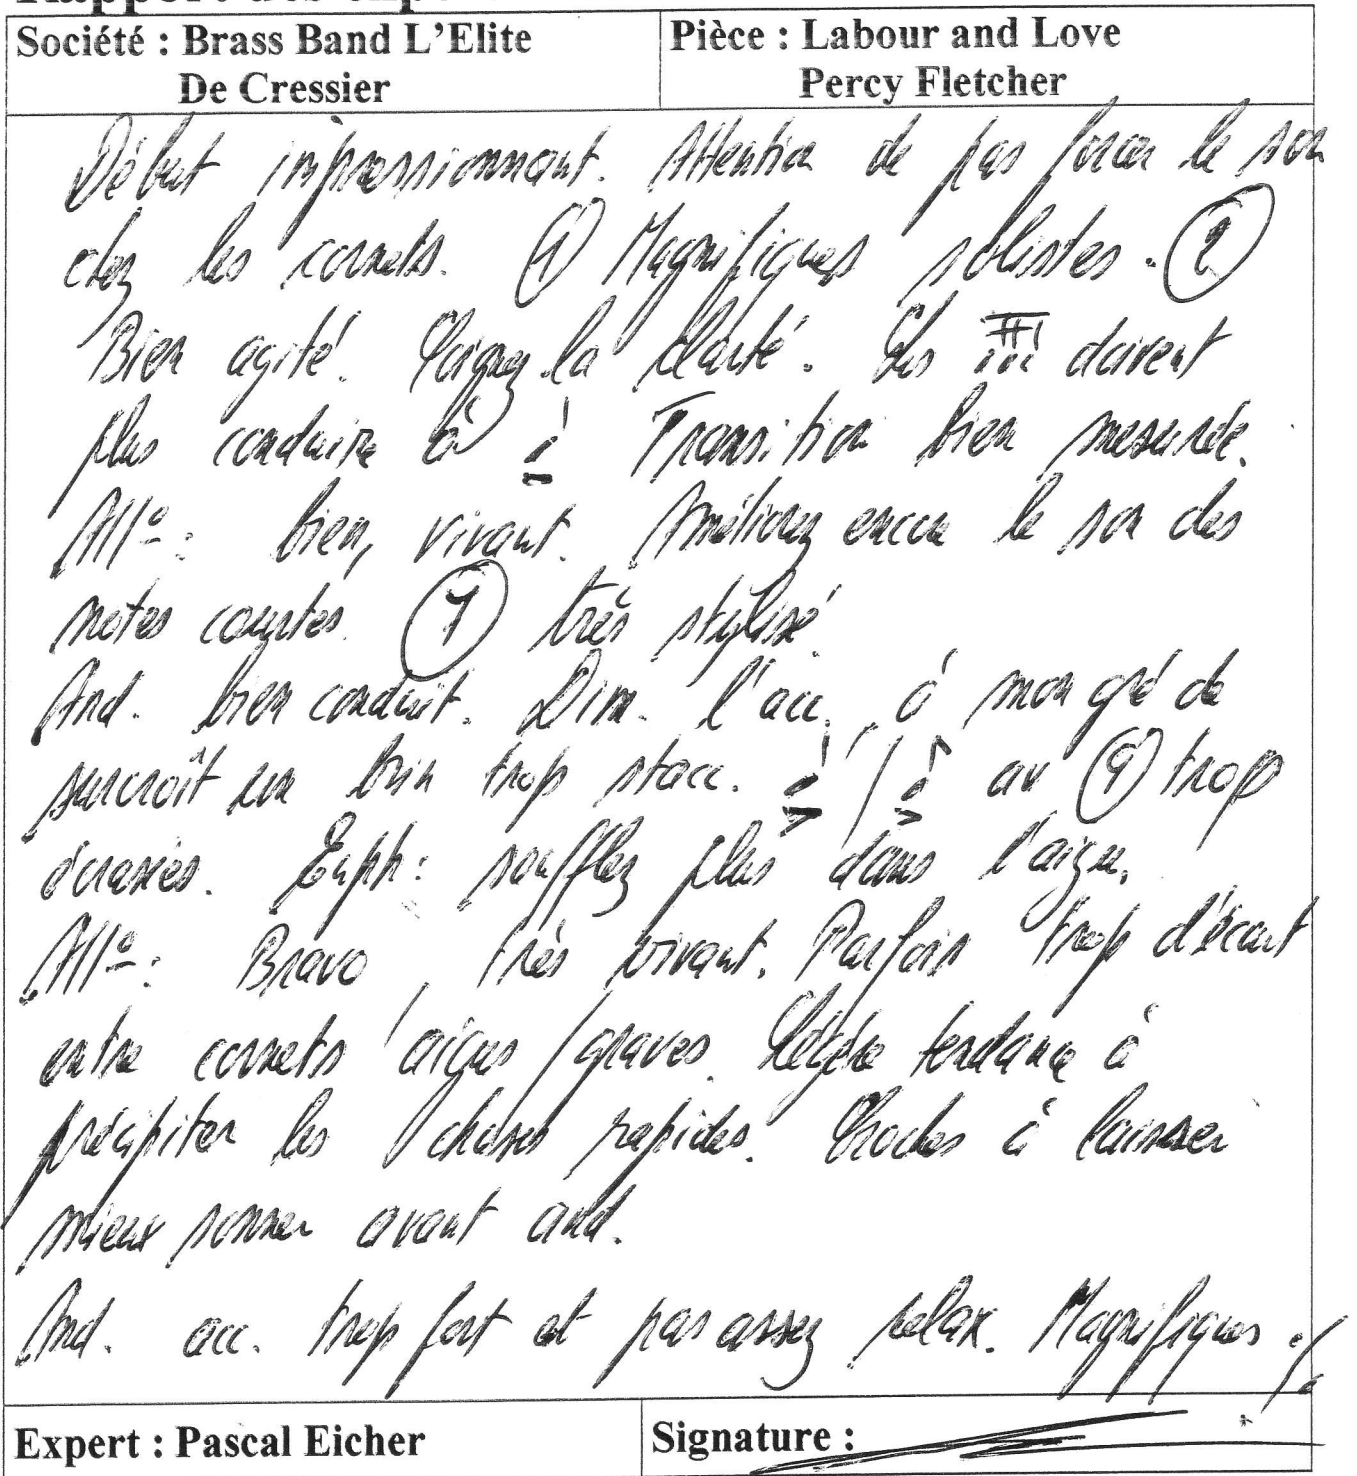 Rapport des exp
Société : Brass Band L'Elite
De Cressier
Pièce : Labour and Love
Percy Fletcher
Début impressionnant. Attention de pas forcer le son
chez les cornets. ① Magnifiques solistes. ②
Bien agité. Soignez la clarté. Les doivent
plus conduire à Transition bien mesurée.
Allo : bien, vivant. Améliorez encore le son des
notes courtes. ⑦ très stylisé.
And. bien conduit. Dim. l'acc., à mon gré de
surcroît un brin trop stacc. / au ⑨ trop
écrasés. Euph : soufflez plus dans l'aigu.
Allo : Bravo, très vivant. Parfois trop d'écart
entre cornets aigus / graves. Légère tendance à
précipiter les choses rapides. Cloches à laisser
mieux sonner avant and.
And. acc. trop fort et pas assez relax. Magnifiques ./.
Expert : Pascal Eicher
Signature :